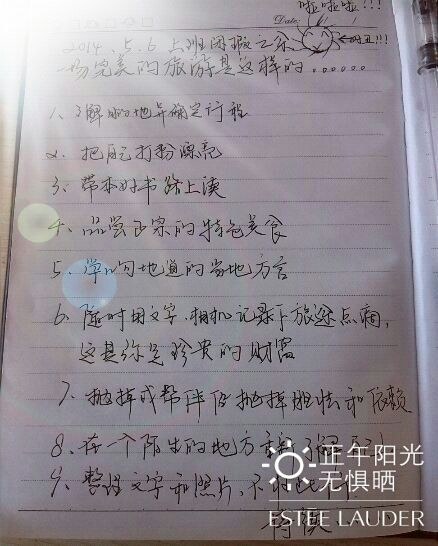 啦啦啦!!!
Date: /
2014.5.6 上班闲暇之余
一场完美的旅游是这样的......
1、了解目的地并确定行程
2、把自己打扮漂亮
3、带本好书路上读
4、品尝正宗的特色美食
5、学几句地道的当地方言
6、随时用文字、相机记录下旅途点滴,
这是你宝贵的财富
7、抛掉或带伴侣抛掉胆怯和依赖
8、在一个陌生的地方重新了解自己
9、整理文字和照片,不
待续
正午阳光
无惧晒
ESTEE LAUDER